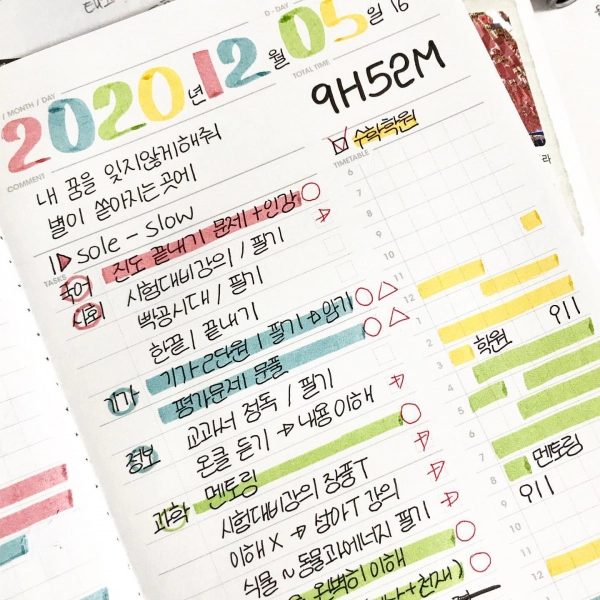 D - DAY
/ MONTH / DAY
2020년 12월 05일
TOTAL TIME
9H52M
COMMENT
내 꿈을 잊지않게해줘
별이 쏟아지는곳에
sole - slow
수학학원
TIMETABLE
TASKS
국어 진도 끝내기 문제 + 인강
사회 시험대비강의 / 필기
빡공시대 / 필기
한끝 끝내기
기가 기가 2단원 필기 → 암기
평가문제 문풀
교과서 정독 / 필기
정보 온클 듣기 → 내용 이해
과학 멘토링
시험대비강의 장풍T
이해 X → 넘아T 강의
식물 ~ 동물과에너지 필기
완벽히 이해
+천재)
6
7
8
9
10
11
12
1
2
3
4
5
6
7
8
9
10
11
12
학원
멘토링
라